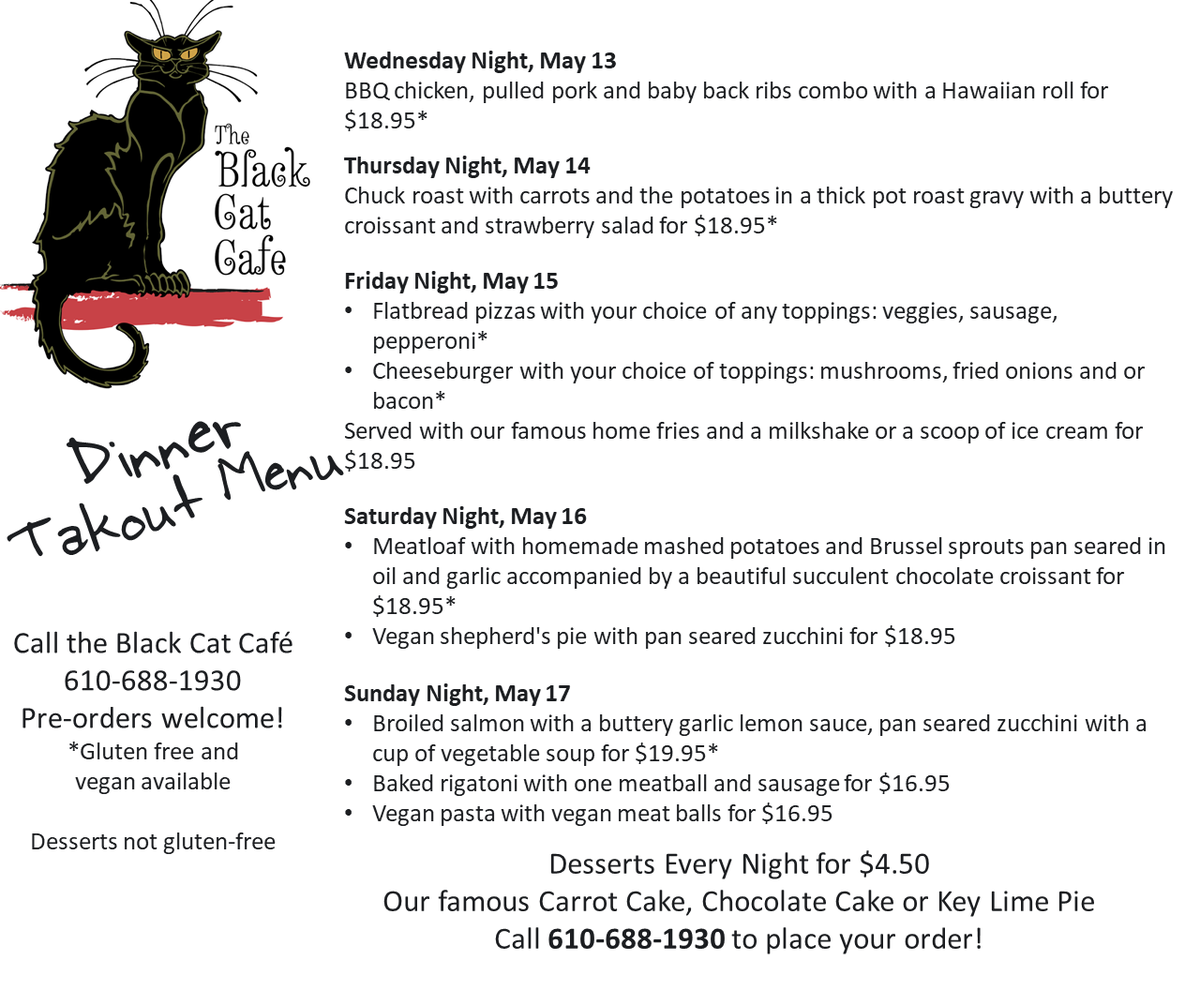 The
Black
Cat
Cafe
Dinner
Takout Menu
Call the Black Cat Café
610-688-1930
Pre-orders welcome!
*Gluten free and
vegan available
Desserts not gluten-free
Wednesday Night, May 13
BBQ chicken, pulled pork and baby back ribs combo with a Hawaiian roll for
$18.95*
Thursday Night, May 14
Chuck roast with carrots and the potatoes in a thick pot roast gravy with a buttery
croissant and strawberry salad for $18.95*
Friday Night, May 15
• Flatbread pizzas with your choice of any toppings: veggies, sausage,
pepperoni*
• Cheeseburger with your choice of toppings: mushrooms, fried onions and or
bacon*
Served with our famous home fries and a milkshake or a scoop of ice cream for
$18.95
Saturday Night, May 16
• Meatloaf with homemade mashed potatoes and Brussel sprouts pan seared in
oil and garlic accompanied by a beautiful succulent chocolate croissant for
$18.95*
• Vegan shepherd's pie with pan seared zucchini for $18.95
Sunday Night, May 17
• Broiled salmon with a buttery garlic lemon sauce, pan seared zucchini with a
cup of vegetable soup for $19.95*
• Baked rigatoni with one meatball and sausage for $16.95
• Vegan pasta with vegan meat balls for $16.95
Desserts Every Night for $4.50
Our famous Carrot Cake, Chocolate Cake or Key Lime Pie
Call 610-688-1930 to place your order!